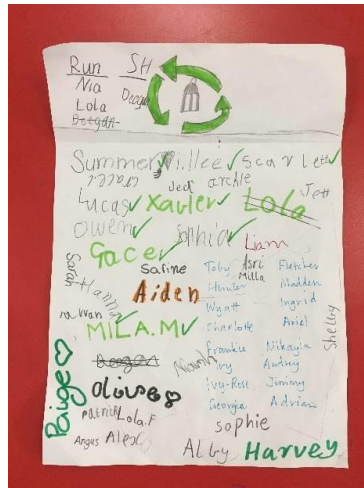 Run SH
Nia Deegan
Lola
Deegan
Summer Millee Scarlett
Grace Jed archie
Lucas Xavier Lola Jett
Owen Sophia Liam
Gace
Sarah Hanna Safine
Aiden
rawan
MILA.M
Toby Asri Fletcher
Hunter Milla Madden
Wyatt Ingrid
Charlotte Ariel
Frankie Mikayla
Ivy Audrey
Ivy-Rose Jimmy
Georgia Adrian
Shelby
Deegan
Niamh
Olive
Paige
Patrick Lola.F
Angus Alex
sophie
Alby Harvey